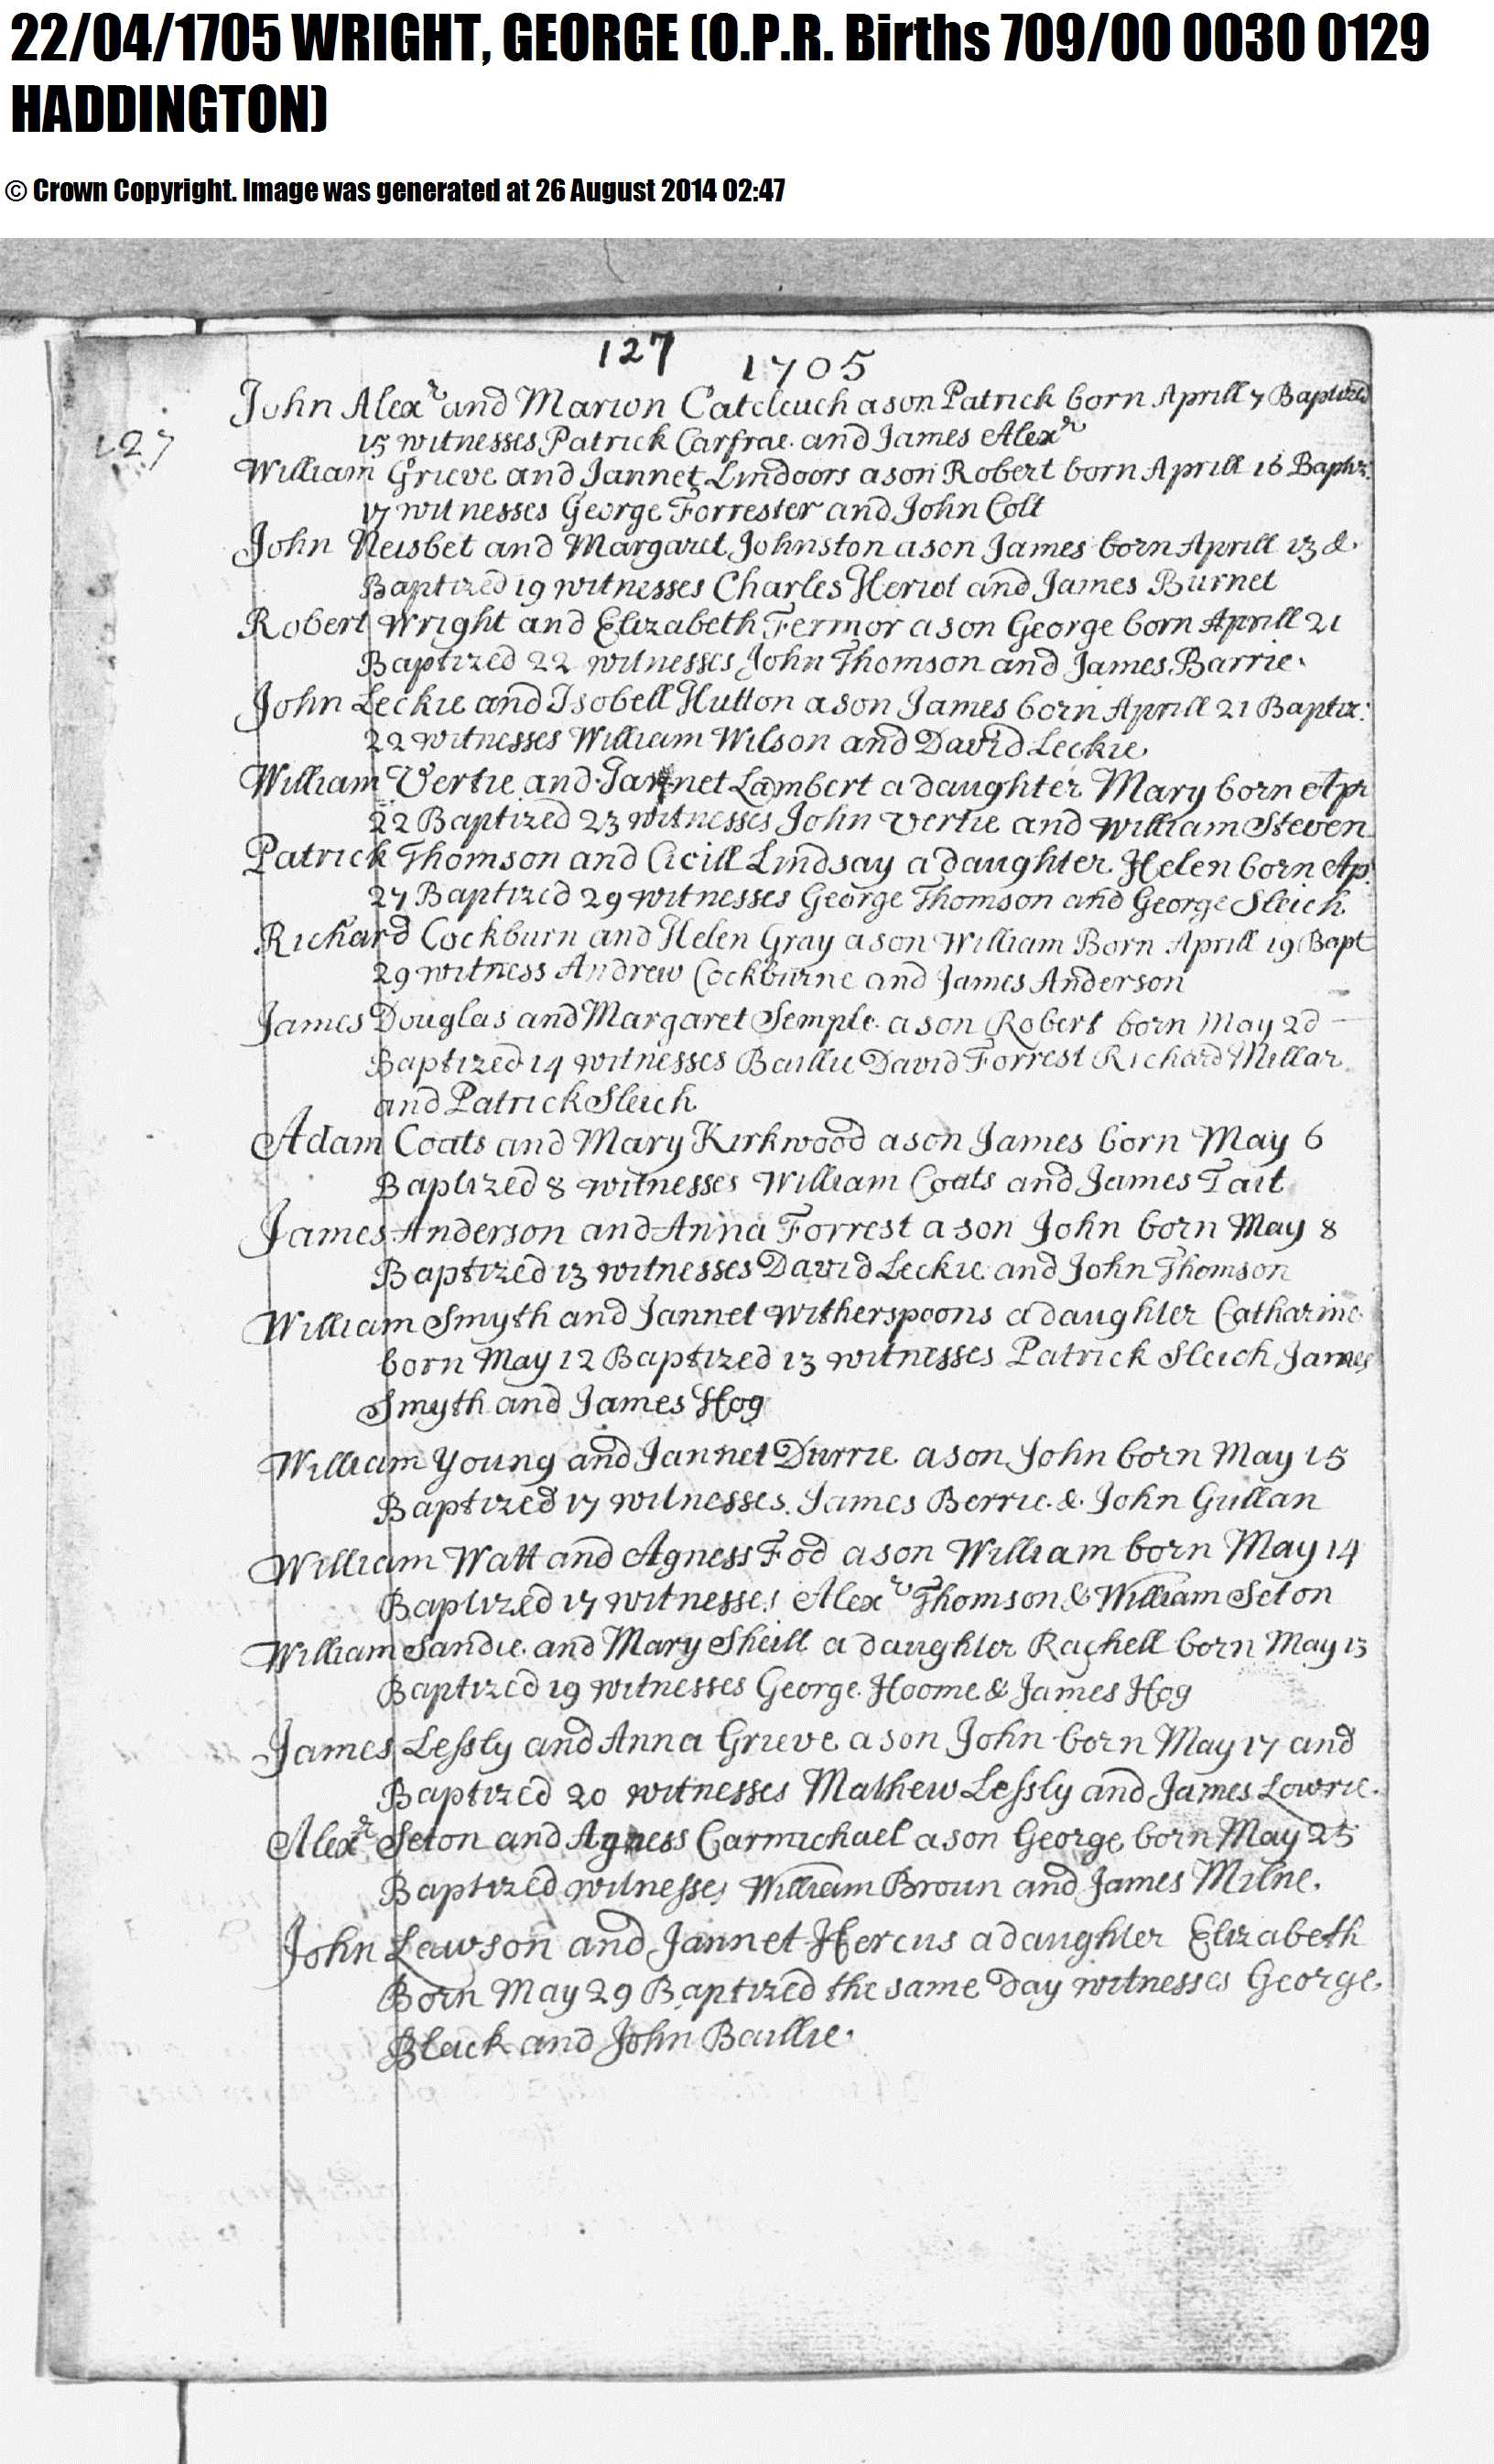 22/04/1705 WRIGHT, GEORGE (O.P.R. Births 709/00 0030 0129
HADDINGTON)
© Crown Copyright. Image was generated at 26 August 2014 02:47
127
1705
John Alexr and Marion Catcleuch a son Patrick born Aprill 7 Baptized
127
15 witnesses Patrick Carfrae and James Alexr
William Grieve and Jannet Lindoors a son Robert born Aprill 16 Baptiz:
17 witnesses George Forrester and John Colt
John Neisbet and Margaret Johnston a son James born Aprill 13 &
Baptized 19 witnesses Charles Heriot and James Burnet
Robert Wright and Elizabeth Fermor a son George born Aprill 21
Baptized 22 witnesses John Thomson and James Barrie.
John Leckie and Isobell Hutton a son James born Aprill 21 Baptiz:
22 witnesses William Wilson and David Leckie.
William Vertie and Jannet Lambert a daughter Mary born Apr
22 Baptized 23 witnesses John Vertie and William Steven
Patrick Thomson and Cicill Lindsay a daughter Helen born Ap:
27 Baptized 29 witnesses George Thomson and George Sleich
Richard Cockburn and Helen Gray a son William Born Aprill 19 Bapt
29 witness Andrew Cockburne and James Anderson
James Douglas and Margaret Semple a son Robert born May 2d
Baptized 14 witnesses Baillie David Forrest Richard Millar
and Patrick Sleich
Adam Coats and Mary Kirkwood a son James born May 6
Baptized 8 witnesses William Coats and James Tait
James Anderson and Anna Forrest a son John born May 8
Baptized 13 witnesses David Leckie and John Thomson
William Smyth and Jannet Witherspoons a daughter Catharine
born May 12 Baptized 13 witnesses Patrick Sleich James
Smyth and James Hog
William Young and Jannet Durrie a son John born May 15
Baptized 17 witnesses James Berrie & John Gullan
William Watt and Agness Fod a son William born May 14
Baptized 17 witnesses Alexr Thomson & William Seton
William Sandie and Mary Sheill a daughter Rachell born May 13
Baptized 19 witnesses George Hoome & James Hog
James Lessly and Anna Grieve a son John born May 17 and
Baptized 20 witnesses Mathew Lessly and James Lowrie.
Alexr Seton and Agness Carmichael a son George born May 25
Baptized witnesses William Broun and James Milne.
John Lawson and Jannet Hercus a daughter Elizabeth
Born May 29 Baptized the same day witnesses George
Black and John Baillie.